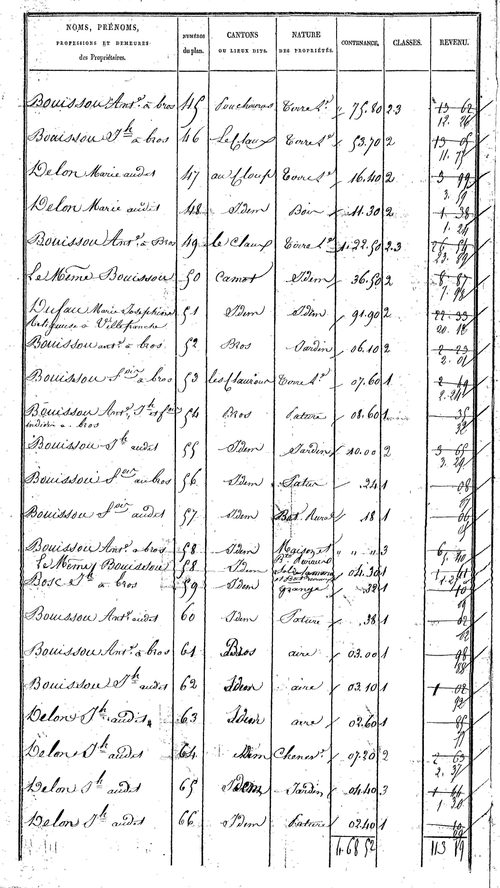 NOMS, PRÉNOMS,
PROFESSIONS ET DEMEURES
des Propriétaires.
NUMÉROS
du plan.
CANTONS
OU LIEUX DITS.
NATURE
DES PROPRIÉTÉS.
CONTENANCE.
CLASSES.
REVENU.
Bouissou Ant.e à bros 45 75.80 2.3 13 62
12. 26
Bouissou Jh à bros 46 Le Claux Terre 53.70 2 13 05
11. 75
Delon Marie audet 47 au Cloup Terre 16.40 2 3 99
3. 59
Delon Marie audet 48 Idem Bois 11.30 2 1 38
1. 24
Bouissou Ant.e à Bros 49 le claux Terre 1.22.50 2.3 26 54
23. 89
Le Même Bouissou 50 Camot Idem 36.50 2 8 87
7. 98
Dufau Marie Josephine 51 Idem Idem 91.90 2 22 33
Religieuse à Villefranche 20. 10
Bouissou ant.e à bros 52 Bros Jardin 06.10 2 2 23
2. 01
Bouissou à bros 53 Terre 07.60 1 2 49
2. 24
Bouissou Ant.e Jh et 54 Bros Pature 08.60 1 35
à bros
Bouissou Jh audet 55 Idem Jardin 10.00 2 3 65
3. 29
Bouissou à bros 56 Idem Patur .24 1 08
07
Bouissou audet 57 Idem Bat. Rural .18 1 06
Bouissou Ant.e à bros 58 Idem Maison et 3
Le Même Bouissou 58 Idem 04.30 1 1 41
Bosc Jh à bros 59 Idem Grange 32 1 10
09
Bouissou Ant.e audet 60 Idem Pature .38 1
Bouissou Ant.e à bros 61 Bros aire 03.00 1 98
88
Bouissou Jh audet 62 Idem aire 03.10 1 1 02
92
Delon Jh audet 63 Idem aire 02.60 1 85
77
Delon Jh audet 64 Idem Chenev.e 07.20 2 2 63
2. 37
Delon Jh audet 65 Idem Jardin 04.40 3 1 44
1. 30
Delon Jh audet 66 Idem Pature 02.40 1
4.68 52 113 19